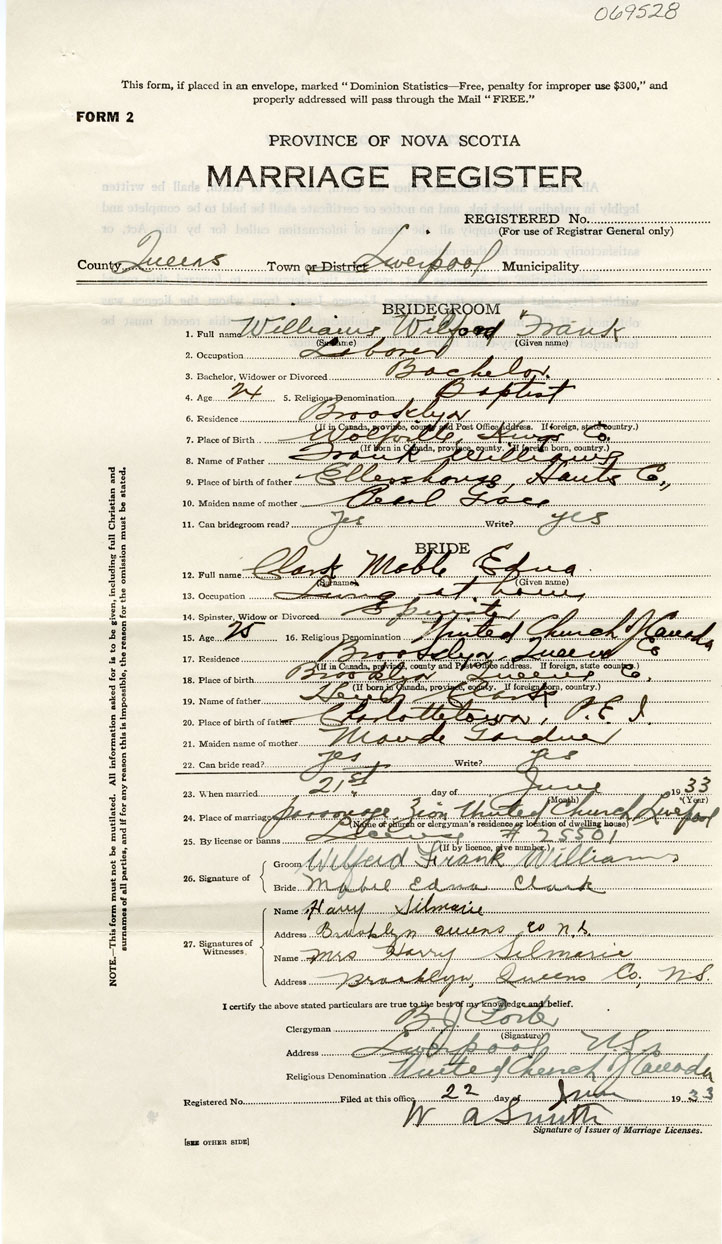 069528
This form, if placed in an envelope, marked "Dominion Statistics—Free, penalty for improper use $300," and
properly addressed will pass through the Mail "FREE."
FORM 2
PROVINCE OF NOVA SCOTIA
MARRIAGE REGISTER
REGISTERED No.
(For use of Registrar General only)
County Queens Town or District Liverpool Municipality
BRIDEGROOM
1. Full name Williams Wilford Frank
(Surname) (Given name)
2. Occupation Laborer
3. Bachelor, Widower or Divorced Bachelor
4. Age 24 5. Religious Denomination Baptist
6. Residence Brooklyn
(If in Canada, province, county and Post Office Address. If foreign, state country.)
7. Place of Birth Wolfville, Kings Co.
(If born in Canada, province, county. If foreign born, country.)
8. Name of Father Frank Williams
9. Place of birth of father Ellershouse, Hants Co.,
10. Maiden name of mother Pearl Grace
11. Can bridegroom read? Yes Write? yes
BRIDE
12. Full name Clark Mable Edna
(Surname) (Given name)
13. Occupation Living at home
14. Spinster, Widow or Divorced Spinster
15. Age 25 16. Religious Denomination United Church of Canada
17. Residence Brooklyn, Queens Co
(If in Canada, province, county and Post Office address. If foreign, state country.)
18. Place of birth Brooklyn Queens Co.
(If born in Canada, province, county. If foreign born, country.)
19. Name of father Clark
20. Place of birth of father Charlottetown, P.E.I.
21. Maiden name of mother Maude Gardner
22. Can bride read? yes Write? yes
23. When married 21st day of June 1933
(Month) (Year)
24. Place of marriage parsonage Zion United Church Liverpool
(Name of church or clergyman's residence or location of dwelling house)
25. By license or banns License # 25501
(If by licence, give number.)
26. Signature of
Groom Wilford Frank Williams
Bride Mabel Edna Clark
27. Signatures of Witnesses
Name Harry Silmarie
Address Brooklyn Queens Co N.S.
Name Mrs Harry Silmarie
Address Brooklyn, Queens Co, N.S.
I certify the above stated particulars are true to the best of my knowledge and belief.
Clergyman B J Porter
(Signature)
Address Liverpool N.S.
Religious Denomination United Church of Canada
Registered No. Filed at this office 22 day of June 1933
W A Smith
Signature of Issuer of Marriage Licenses.
[SEE OTHER SIDE]
NOTE.—This form must not be mutilated. All information asked for is to be given, including full Christian and
surnames of all parties, and if for any reason this is impossible, the reason for the omission must be stated.